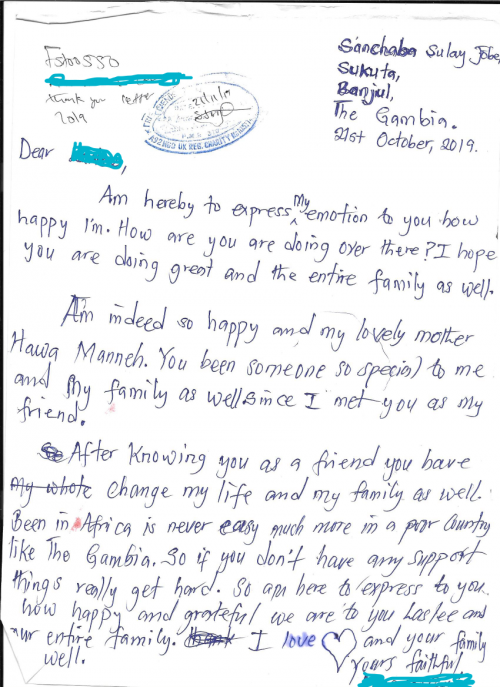 Sanchaba Sulay Jobe,
Sukuta,
Banjul,
The Gambia.
21st October, 2019.
thank you letter
2019
21/11/19
Dear
Am hereby to express My emotion to you how
happy I'm. How are you are doing over there? I hope
you are doing great and the entire family as well.
Am indeed so happy and my lovely mother
Hawa Manneh. You been someone so special to me
and My family as well since I met you as my
friend.
After Knowing you as a friend you have
My whole change my life and my family as well.
Been in Africa is never easy much more in a poor Country
like The Gambia. So if you don't have any support
things really get hard. So am here to express to you
how happy and grateful we are to you and
our entire family. I love and your family
well.
Yours faithful